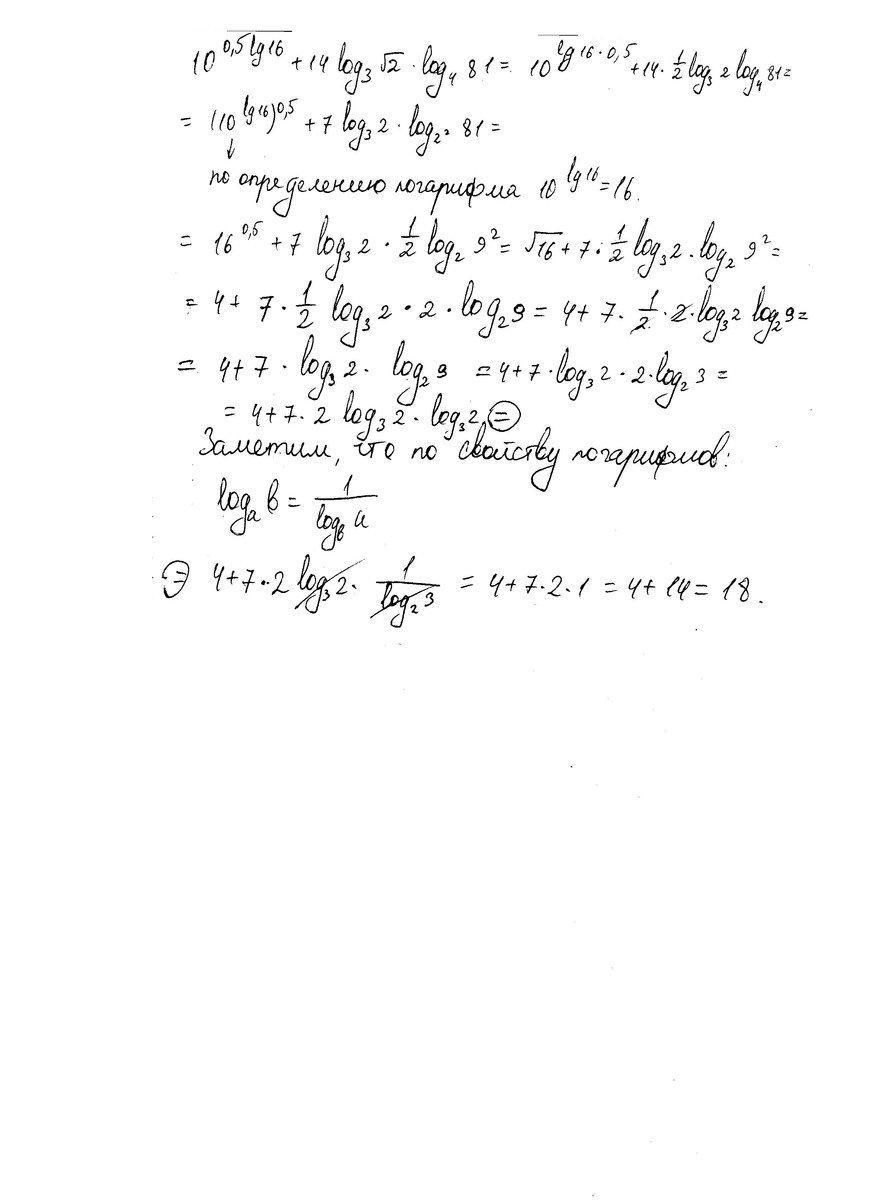 10^{0,5lg16} + 14 log₃ √2 · log₄ 81 = 10^{lg16·0,5} + 14 · 1/2 log₃ 2 log₄ 81 =
= (10^{lg16})^{0,5} + 7 log₃ 2 · log_{2²} 81 =
↓
по определению логарифма 10^{lg16} = 16.
= 16^{0,5} + 7 log₃ 2 · 1/2 log₂ 9² = √16 + 7 · 1/2 log₃ 2 · log₂ 9² =
= 4 + 7 · 1/2 log₃ 2 · 2 · log₂ 9 = 4 + 7 · 1/2 · 2 · log₃ 2 log₂ 9 =
= 4 + 7 · log₃ 2 · log₂ 9 = 4 + 7 · log₃ 2 · 2 · log₂ 3 =
= 4 + 7 · 2 log₃ 2 · log₃ 2 =
Заметим, что по свойству логарифмов:
logₐ b = 1/log_b a
= 4 + 7 · 2 log₃ 2 · 1/log₂ 3 = 4 + 7 · 2 · 1 = 4 + 14 = 18.